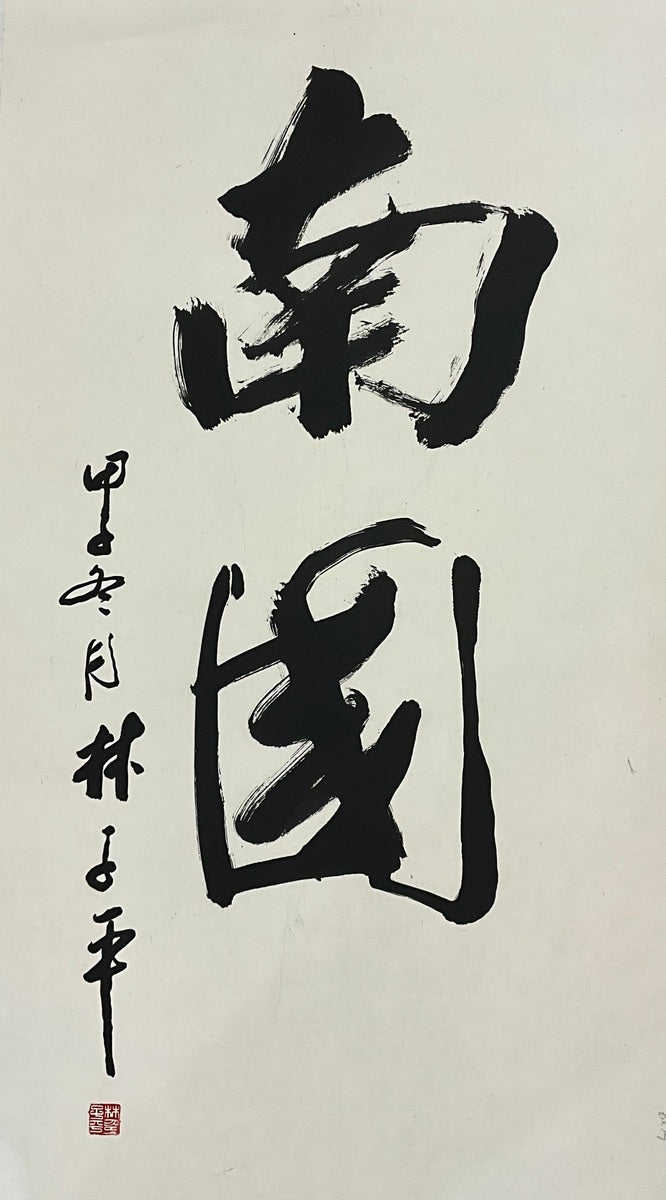 南國
甲子冬月 林子平